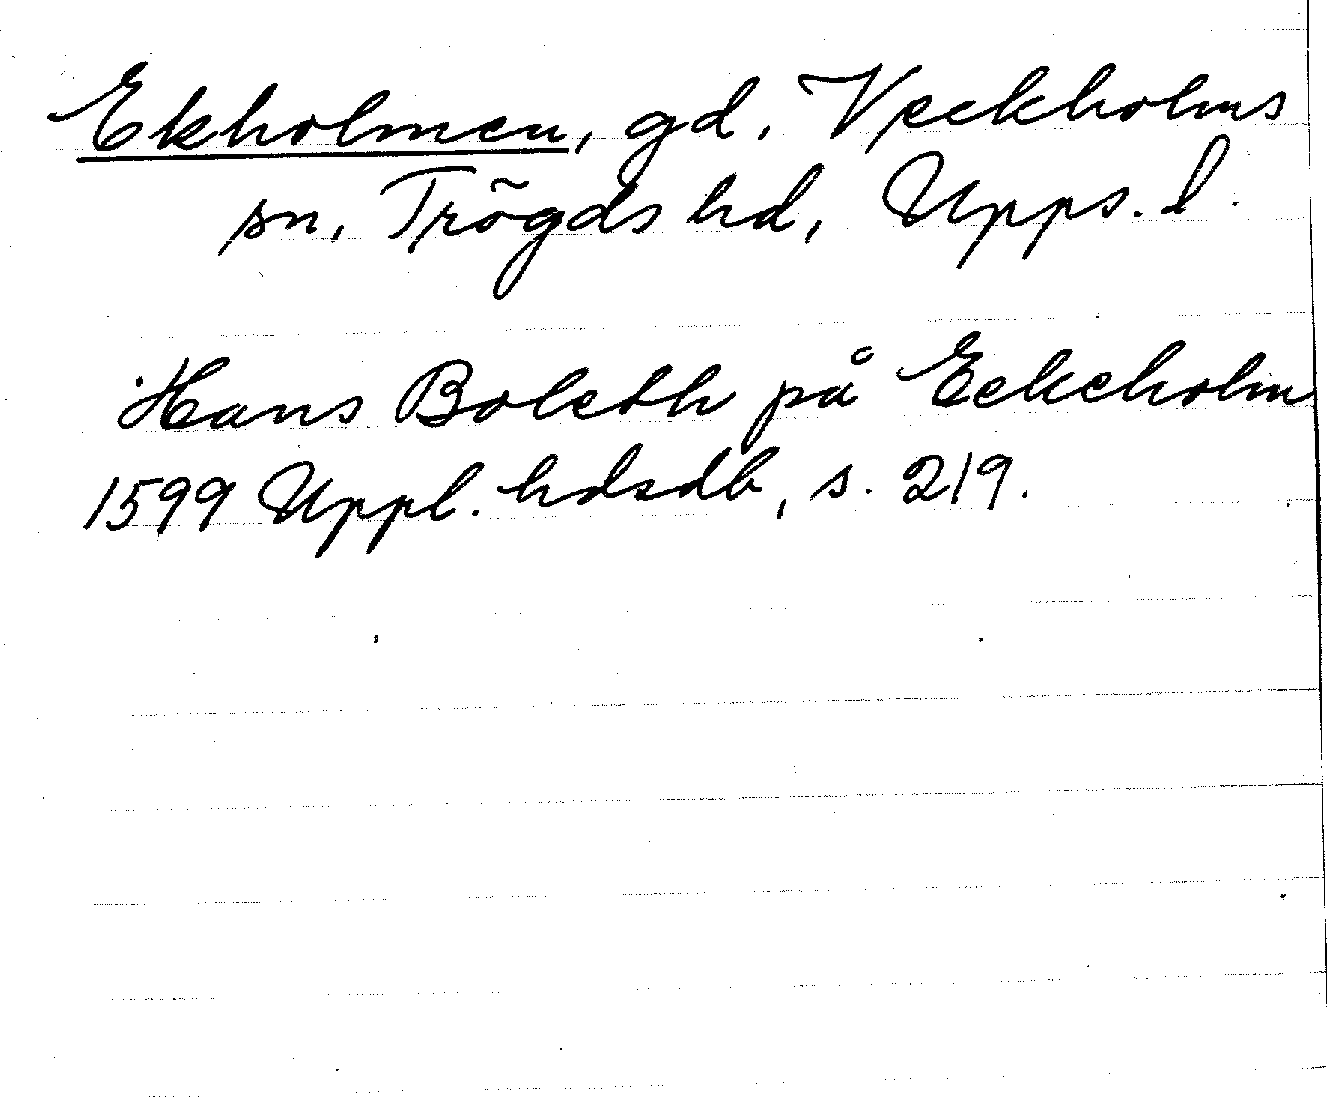 Ekholmen, gd, Veckholms
sn, Trögds hd, Upps. l.
Hans Boleth på Eckeholm
1599 Uppl. hdsdb, s. 219.